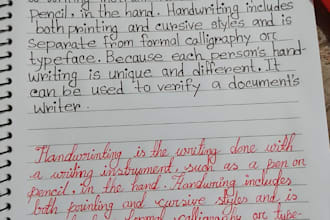 pencil, in the hand. Handwriting includes
both printing and cursive styles and is
separate from formal calligraphy or
typeface. Because each person's hand-
writing is unique and different. It
can be used to verify a document's
writer.
Handwrinting is the writing done with
a writing instrument, such as a pen or
pencil, in the hand. Handwring includes
both printing and cursive styles and, is
formal calligraphy or type-